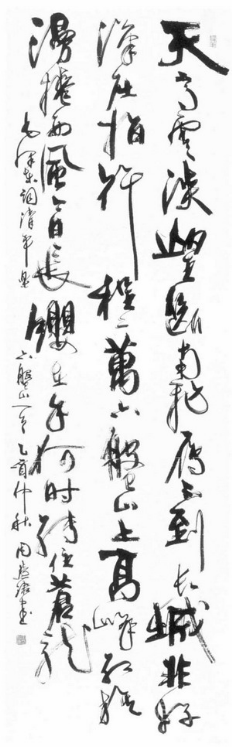 天高雲淡望斷南飛雁不到长城非好
漢屈指行程二萬六盤山上高峰紅旗
漫捲西風今日長纓在手何時縛住蒼龍
毛澤東詞清平樂六盤山一首乙酉仲秋周書